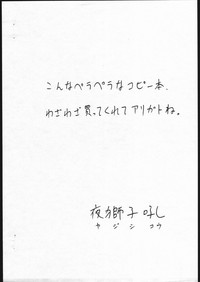 こんなペラペラなコピー本、
わざわざ買ってくれてアリガトね。
夜獅子吼し
ヤジシコウ